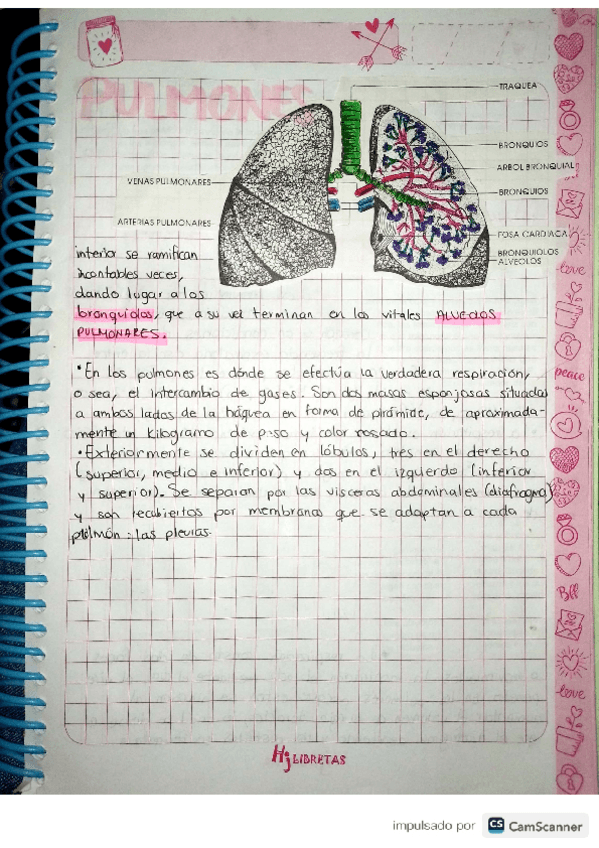 PULMONES
TRAQUEA
BRONQUIOS
ARBOL BRONQUIAL
VENAS PULMONARES
BRONQUIOS
ARTERIAS PULMONARES
FOSA CARDIACA
BRONQUIOLOS
ALVEOLOS
interior se ramifican
incontables veces,
dando lugar a los
bronquiolos, que a su vez terminan en los vitales ALVEOLOS
PULMONARES.
•En los pulmones es dónde se efectúa la verdadera respiración,
o sea, el intercambio de gases. Son dos masas esponjosas situadas
a ambos lados de la tráquea en forma de pirámide, de aproximada-
mente un kilogramo de peso y color rosado.
•Exteriormente se dividen en lóbulos, tres en el derecho
(superior, medio e inferior) y dos en el izquierdo (inferior
y superior). Se separan por las visceras abdominales (diafragma)
y son recubiertos por membranas que se adaptan a cada
pulmón: las pleuras.
love
peace
BFF
love
Hj LIBRETAS
impulsado por CS CamScanner